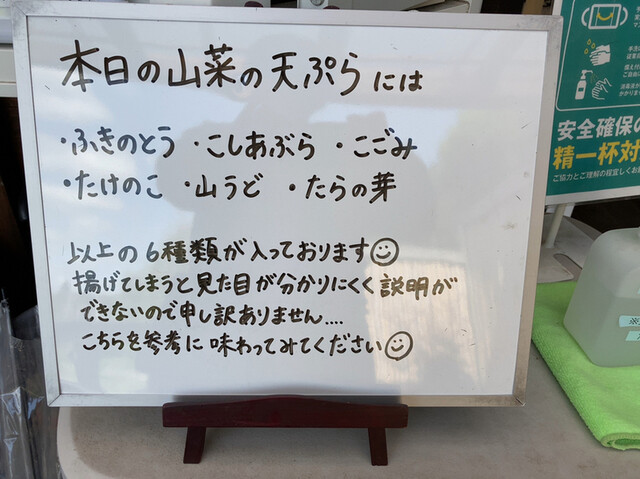 本日の山菜の天ぷらには
・ふきのとう ・こしあぶら ・こごみ
・たけのこ ・山うど ・たらの芽
以上の6種類が入っております☺
揚げてしまうと見た目が分かりにくく説明が
できないので申し訳ありません....
こちらを参考に味わってみてください☺
安全確保の
精一杯対
ご協力とご理解の程宜しくお